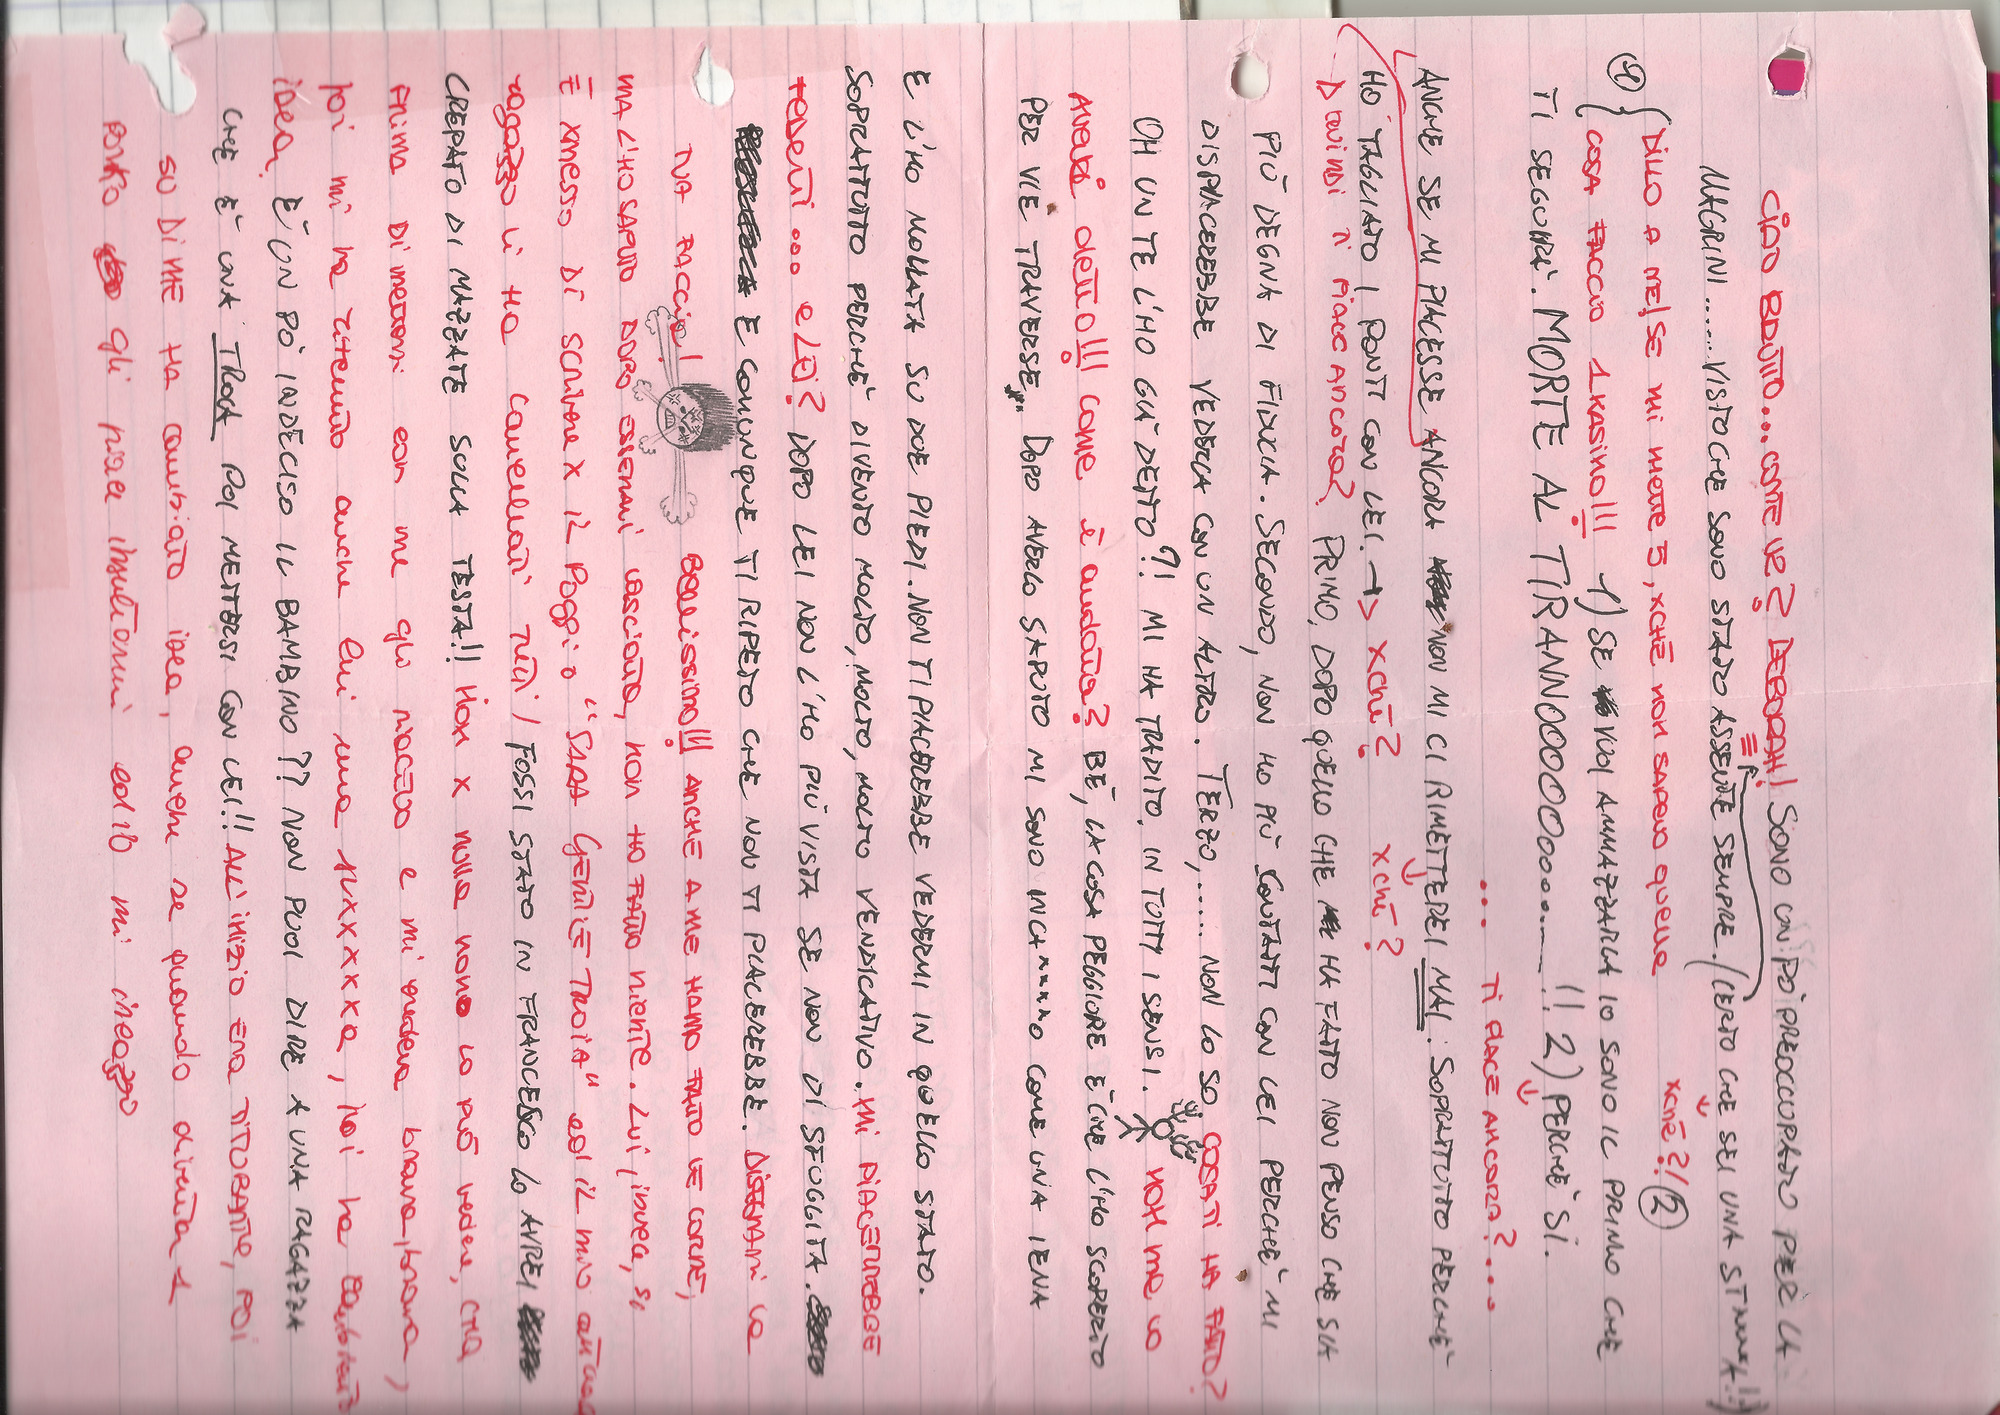 CIAO BRUTTO.... COME VE? DEBORAH! SONO UN PÒ PREOCCUPATO PER LA
MAGRINI...... VISTO CHE SONO STATO ASSENTE SEMPRE. (CERTO CHE SEI UNA
xchè?! 2
1 { DILLO A ME! SE MI METTE 5, XCHÈ NON SAPEVO QUELLA
COSA FACCIO 1 KASINO!!! 1) SE VUOI AMMAZZARLA IO SONO IL PRIMO CHE
TI SEGUIRÀ. MORTE AL TIRANNOOOOOOoooo......!! 2) PERCHÈ SI.
.... TI PIACE ANCORA?....
ANCHE SE MI PIACESSE ANCORA NON MI CI RIMETTEREI MAI. SOPRATTUTTO PERCHÈ
HO TAGLIATO I PONTI CON LEI. → xchè? xchè?
Quindi ti piace ancora? PRIMO, DOPO QUELLO CHE HA FATTO NON PENSO CHE SIA
PIÙ DEGNA DI FIDUCIA. SECONDO, NON HO PIÙ CONTATTI CON LEI PERCHÈ MI
DISPIACEREBBE VEDERLA CON UN ALTRO. TERZO,...... NON LO SO. COSA TI HA FATTO?
OH UN TE L'HO GIÀ DETTO?! MI HA TRADITO, IN TUTTI I SENSI. NON ME LO
AVEVI detto!!! come è andata? BÈ, LA COSA PEGGIORE È CHE L'HO SCOPERTO
PER VIE TRAVERSE. DOPO AVERLO SAPUTO MI SONO INCA*****O COME UNA IENA
E L'HO MOLLATA SU DUE PIEDI. NON TI PIACEREBBE VEDERMI IN QUELLO STATO.
SOPRATTUTTO PERCHÈ DIVENTO MOLTO, MOLTO, MOLTO VENDICATIVO. MI PIACEREBBE
VEDERTI... e LEI? DOPO LEI NON L'HO PIÙ VISTA SE NON DI SFUGGITA.
E COMUNQUE TI RIPETO CHE NON TI PIACEREBBE. DISEGNAMI LA
TUA FACCIA! BELLISSIMO!!! ANCHE A ME HANNO FATTO LE CORNE,
MA L'HO SAPUTO DOPO ESSERMI LASCIATA, NON HO FATTO NIENTE. LUI, INVECE, SI
È XMESSO DI SCRIVERE X IL POGGIO "SARA GENTILE TROIA" ed il mio
ragazzo li HA cancellati TUTTI / FOSSI STATO IN FRANCESCO LO AVREI
CREPATO DI MAZZATE SULLA TESTA!! NON X nulla nono LO PUÒ vedere, CMQ
PRIMA Di mettermi con me gli piacevo e mi credeva brava, brava,
poi mi ha ritenuto anche lui una tr
idea, È UN PÒ INDECISO IL BAMBINO?? NON PUOI DIRE A UNA RAGAZZA
CHE È UNA TROIA POI METTERSI CON LEI!! ALL'INIZIO ERA TITUBANTE, POI
SU DI ME HA cambiato idea, anche se quando diventa 1
porko gli piace insultarmi ed io mi incazzo